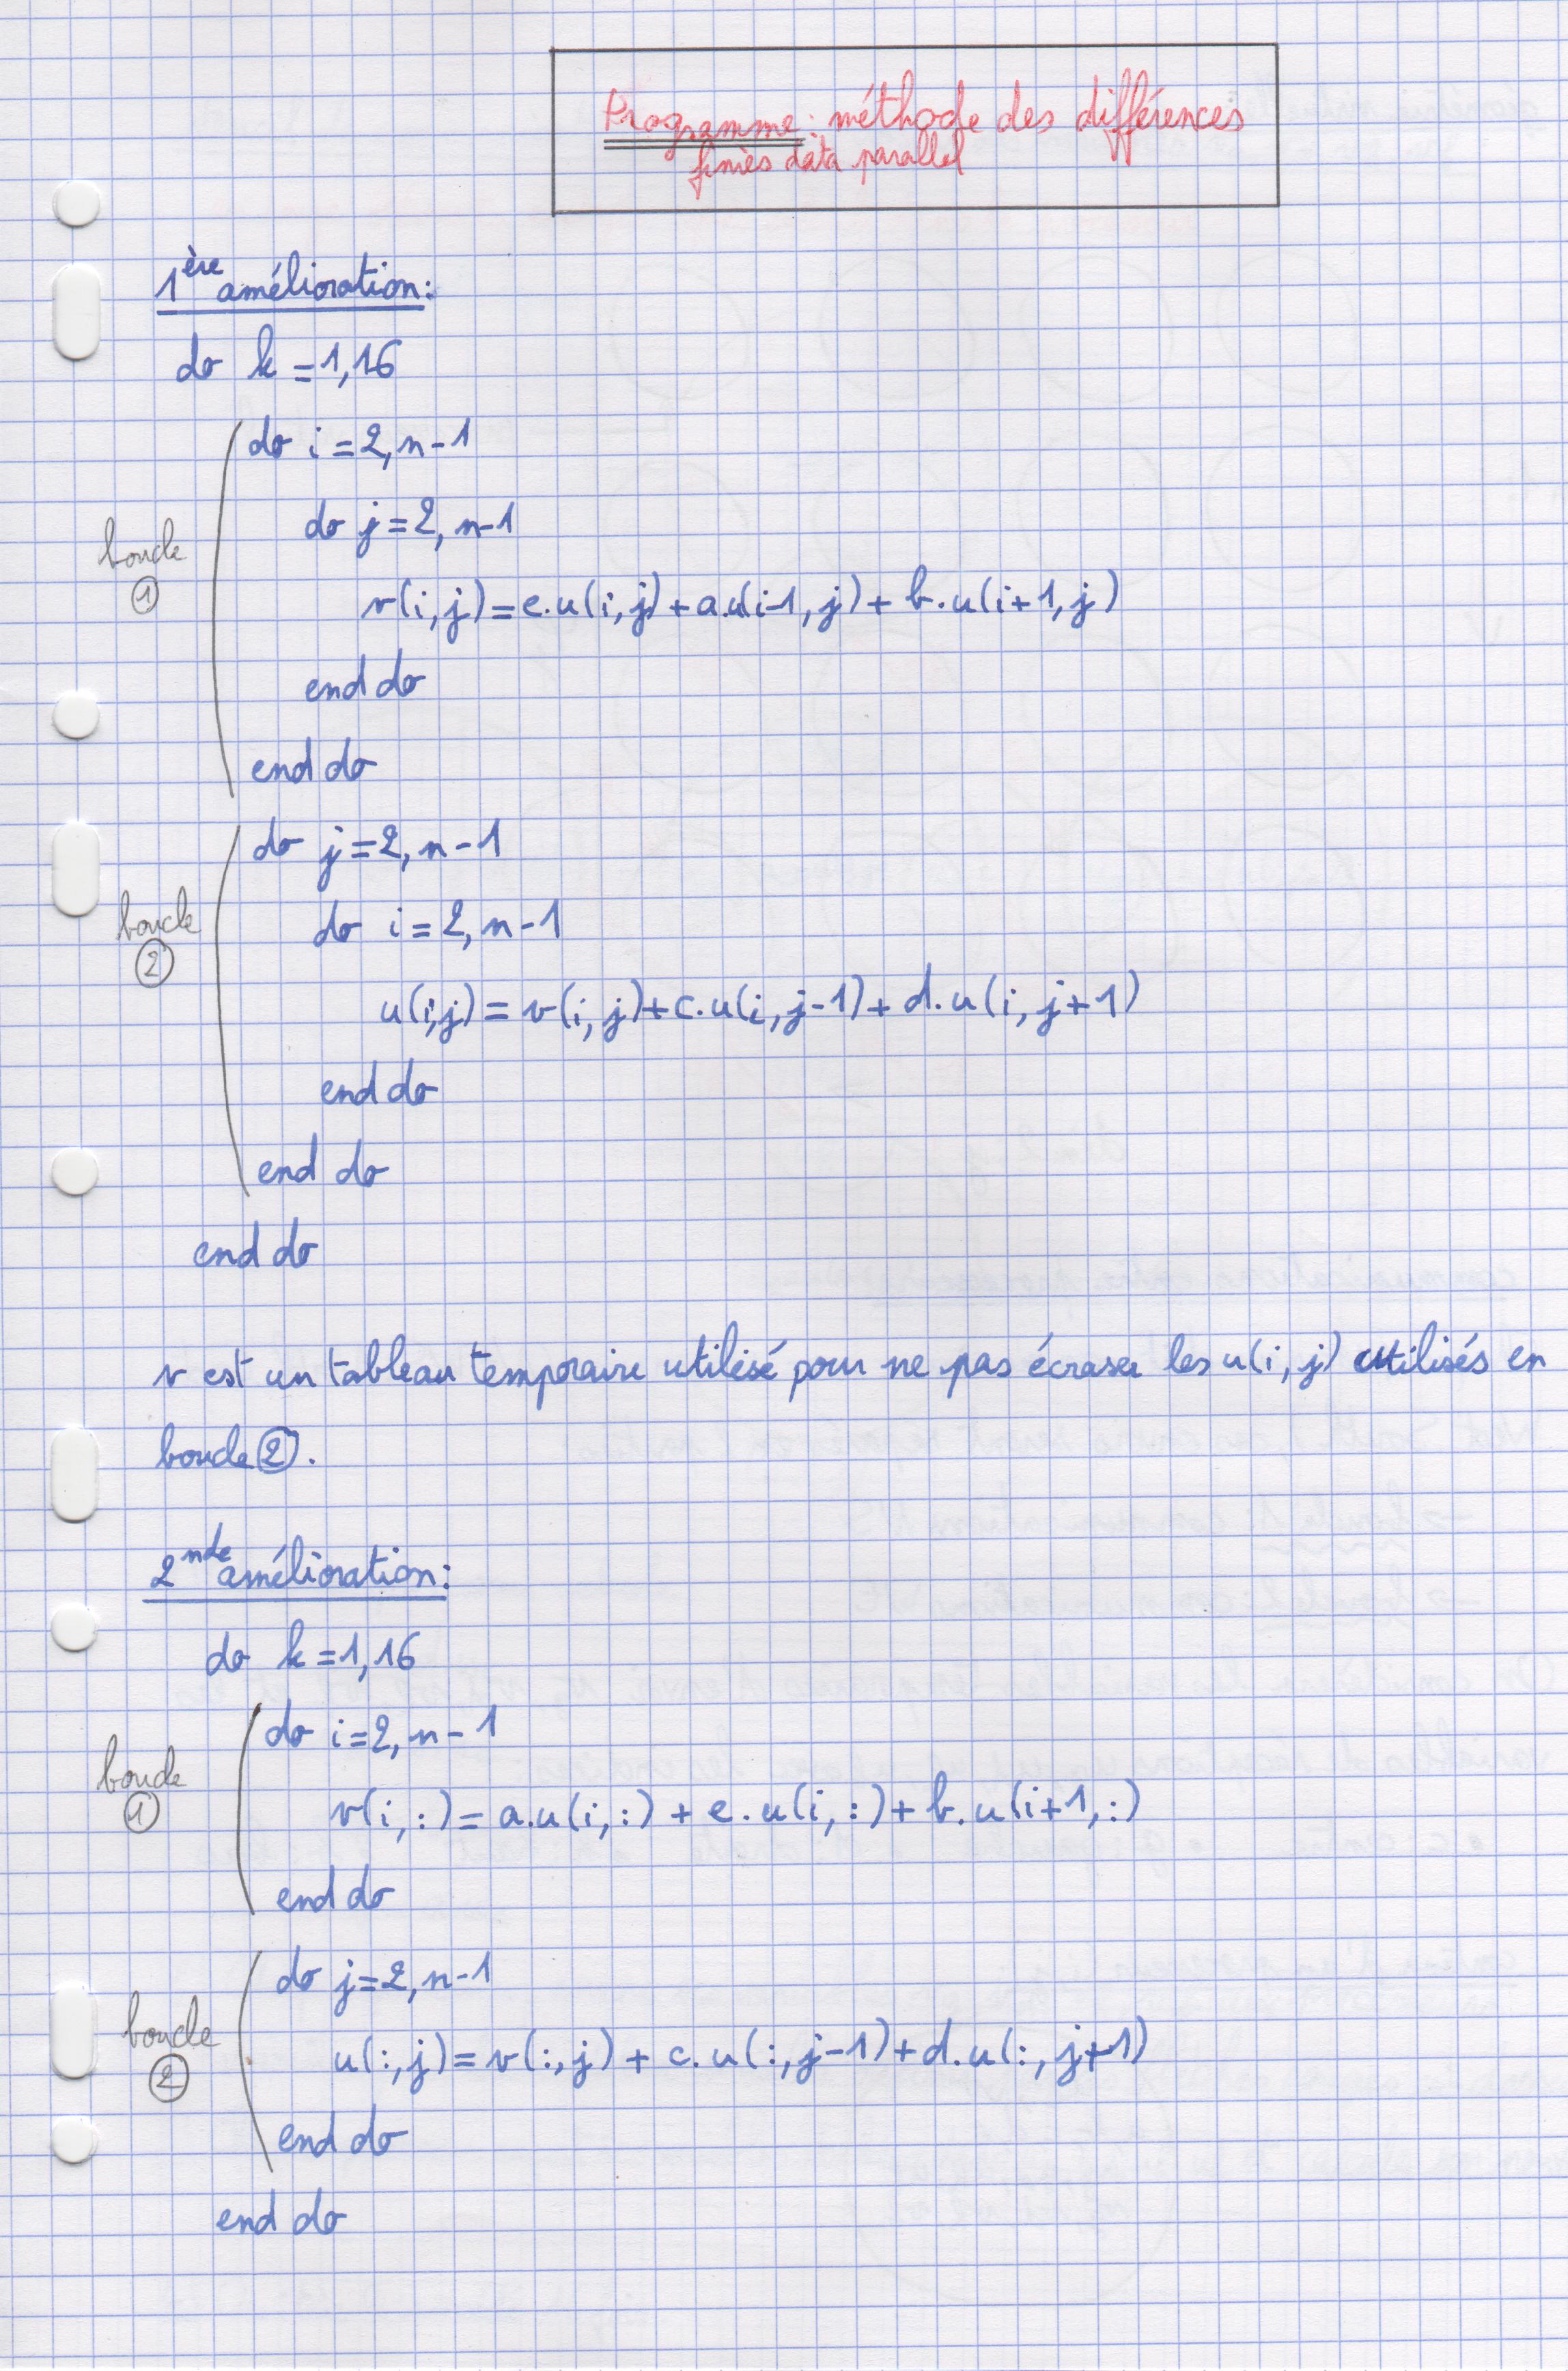 Programme: méthode des différences
finies data parallel
1ère amélioration:
do k=1,16
do i=2,n-1
do j=2,n-1
boucle
①
v(i,j)=e.u(i,j)+a.u(i-1,j)+b.u(i+1,j)
end do
end do
do j=2,n-1
boucle
②
do i=2,n-1
u(i,j)=v(i,j)+c.u(i,j-1)+d.u(i,j+1)
end do
end do
end do
v est un tableau temporaire utilisé pour ne pas écraser les u(i,j) utilisés en
boucle ②.
2nde amélioration:
do k=1,16
do i=2,n-1
boucle
①
v(i,:)=a.u(i,:)+e.u(i,:)+b.u(i+1,:)
end do
do j=2,n-1
boucle
②
u(:,j)=v(:,j)+c.u(:,j-1)+d.u(:,j+1)
end do
end do